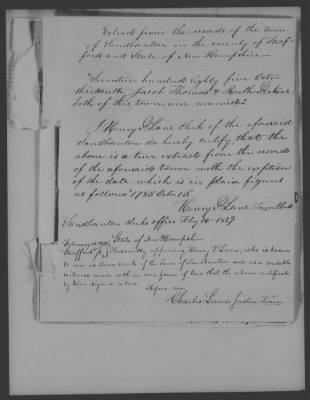 Extract from the records of the town
of Sandbornton in the county of Straf-
ford and State of New Hampshire—
"Seventeen hundred eighty five Octr
thirteenth Jacob Thomas & Ruth Perkins
both of this town were married"
I Henry P. Lane Clerk of the aforesaid
Sandbornton do hereby certify, that the
above is a true extract from the records
of the aforesaid town with the exception
of the date which is in plain figures
as follows "1785 Octr 13"
Henry P. Lane Town Clerk
Sandbornton clerks office Feby 14 1839
State of New Hampshire
Strafford Personally appearing Henry P Lane, who is known
to me as town clerk of the town of Sandbornton and as a credible
witness, made oath in due form of law that the above certificate
by him signed is true Before me,
Charles Lane Justice Peace